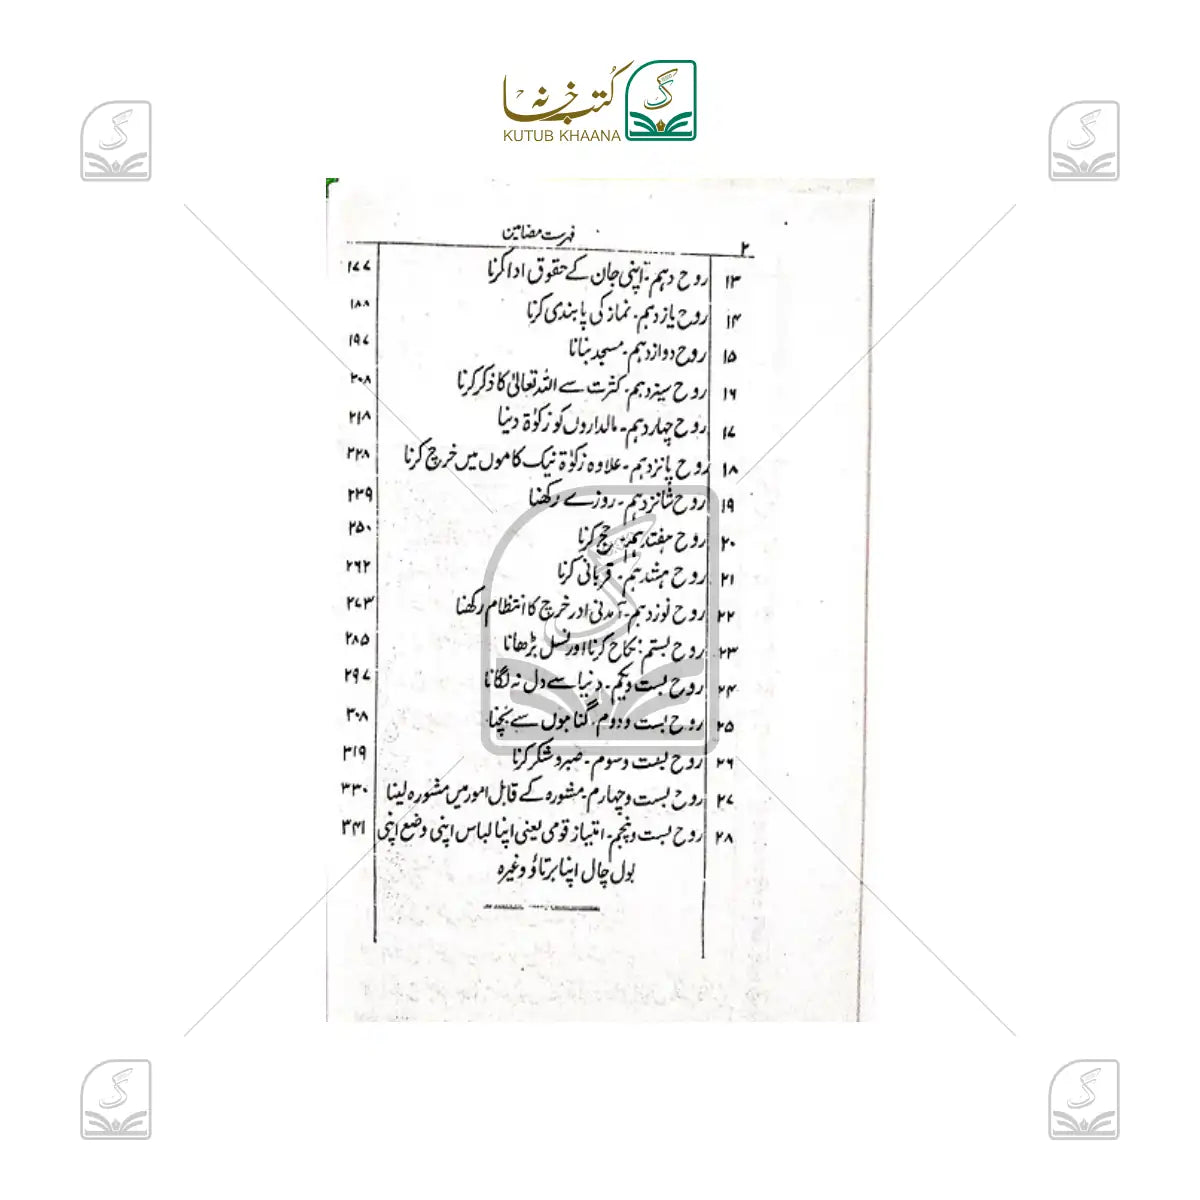 کتب خانہ
KUTUB KHAANA
۲
فہرست مضامین
۱۳ روح دہم۔ اپنی جان کے حقوق ادا کرنا ۱۷۷
۱۴ روح یازدہم۔ نماز کی پابندی کرنا ۱۸۸
۱۵ روح دوازدہم۔ مسجد بنانا ۱۹۷
۱۶ روح سیزدہم۔ کثرت سے اللہ تعالیٰ کا ذکر کرنا ۲۰۸
۱۷ روح چہاردہم۔ مالداروں کو زکوٰۃ دینا ۲۱۸
۱۸ روح پانزدہم۔ علاوہ زکوٰۃ نیک کاموں میں خرچ کرنا ۲۲۸
۱۹ روح شانزدہم۔ روزے رکھنا ۲۳۹
۲۰ روح ہفتدہم۔ حج کرنا ۲۵۰
۲۱ روح ہشدہم۔ قربانی کرنا ۲۶۲
۲۲ روح نوزدہم۔ آمدنی اور خرچ کا انتظام رکھنا ۲۷۳
۲۳ روح بستم: نکاح کرنا اور نسل بڑھانا ۲۸۵
۲۴ روح بست ویکم۔ دنیا سے دل نہ لگانا ۲۹۷
۲۵ روح بست ودوم۔ گناہوں سے بچنا ۳۰۸
۲۶ روح بست وسوم۔ صبر و شکر کرنا ۳۱۹
۲۷ روح بست وچہارم۔ مشورہ کے قابل امور میں مشورہ لینا ۳۳۰
۲۸ روح بست وپنجم۔ امتیاز قومی یعنی اپنا لباس اپنی وضع اپنی ۳۴۱
بول چال اپنا برتاؤ وغیرہ